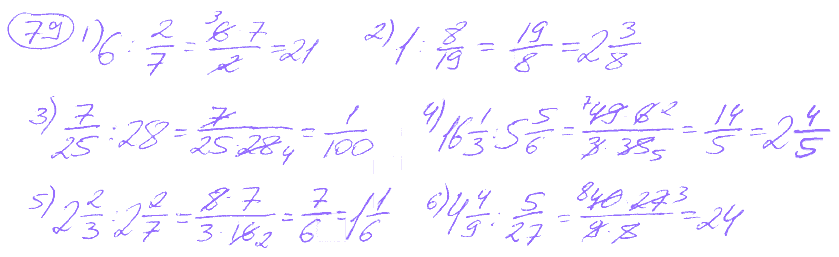 79 1) 6 : 2/7 = 6·7/2 = 21 2) 1 : 8/19 = 19/8 = 2 3/8
3) 7/25 : 28 = 7/25·28 = 1/100 4) 16 1/3 : 5 5/6 = 49·6/3·35 = 14/5 = 2 4/5
5) 2 2/3 : 2 2/7 = 8·7/3·16 = 7/6 = 1 1/6 6) 4 4/9 : 5/27 = 40·27/9·8 = 24